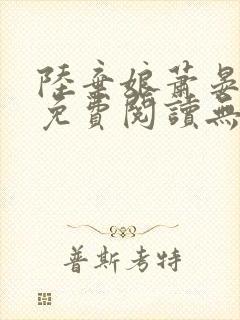 陸棄娘蕭晏
免費閱讀無
普斯考特